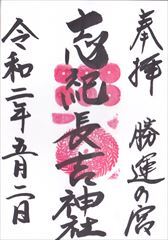 奉拝
勝運の宮
志紀長吉神社
令和二年五月二日